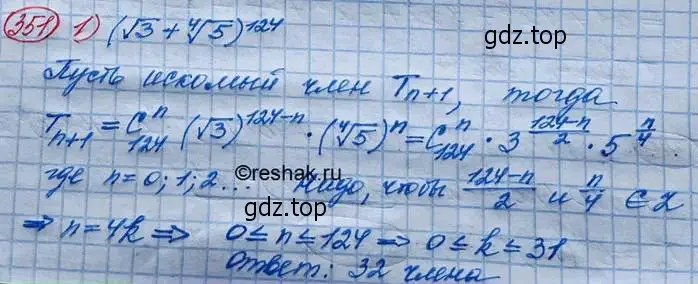 351 1) (√3 + ∜5)^124
Пусть искомый член T_{n+1}, тогда
T_{n+1} = C_{124}^{n} (√3)^{124-n} · (∜5)^n = C_{124}^{n} · 3^{(124-n)/2} · 5^{n/4}
©reshak.ru
где n = 0; 1; 2... Надо, чтобы (124-n)/2 и n/4 ∈ Z
gdz.top
⇒ n = 4k ⇒ 0 ≤ n ≤ 124 ⇒ 0 ≤ k ≤ 31
gdz.top
Ответ: 32 члена